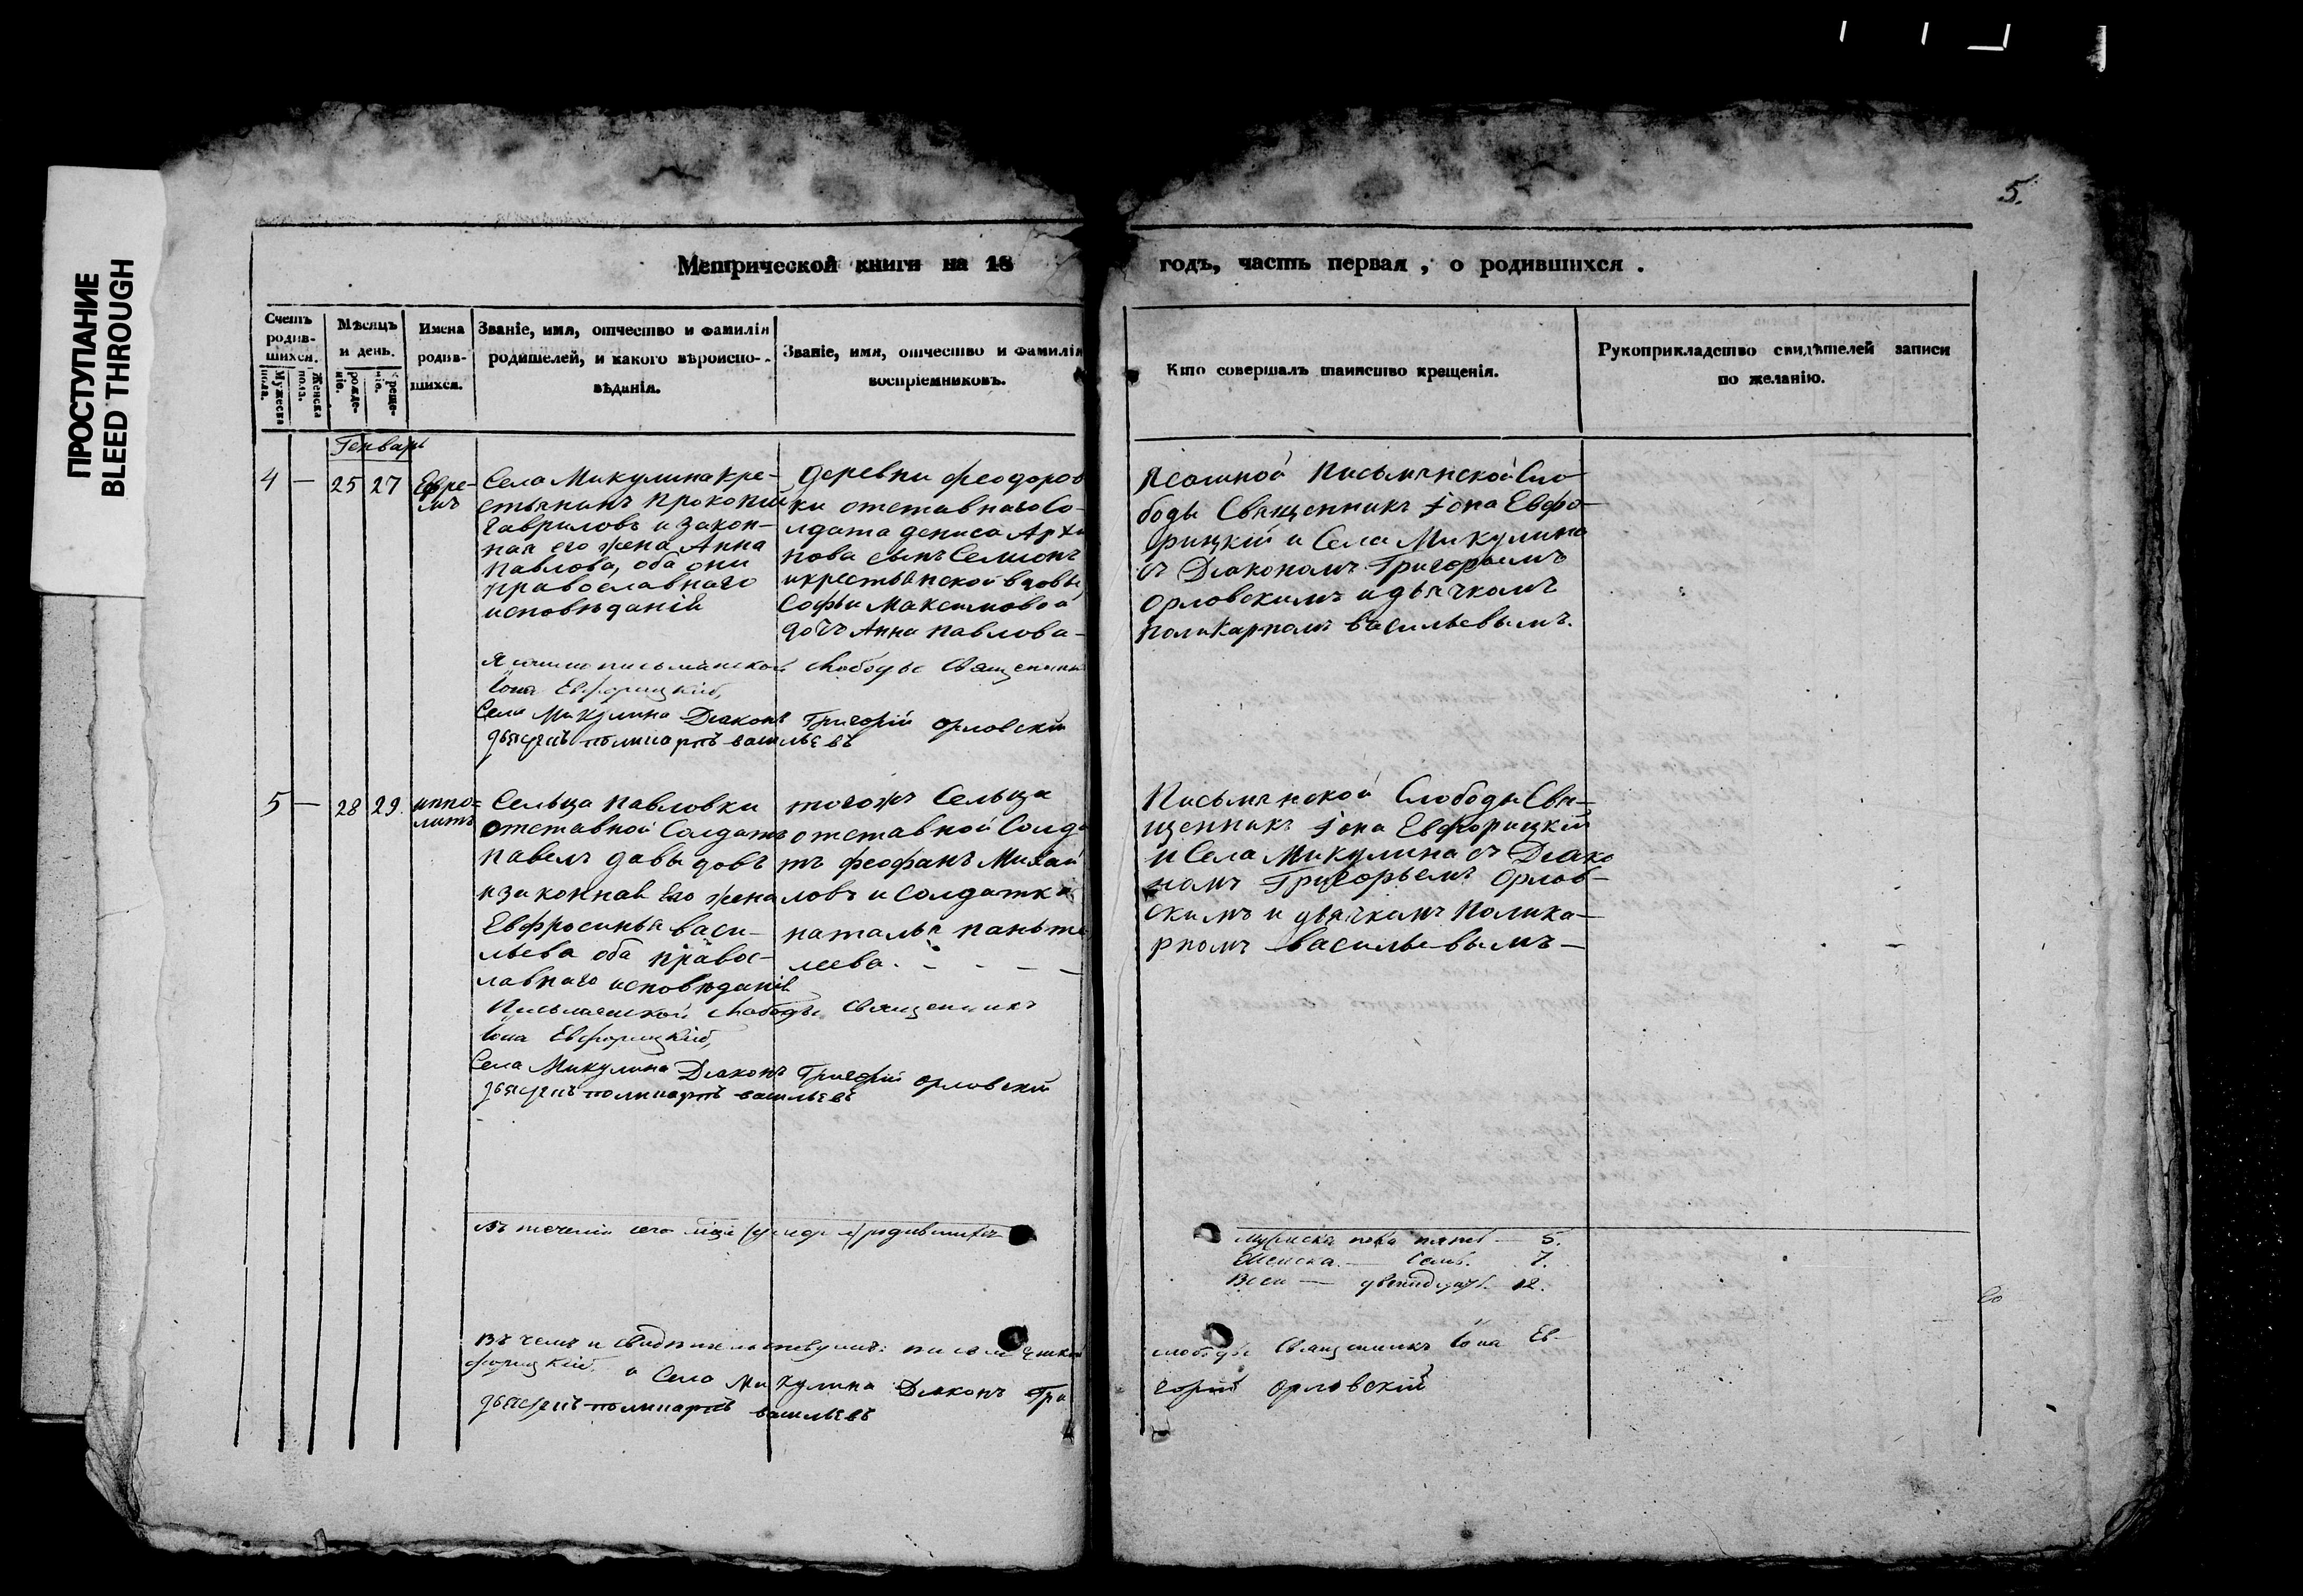 ПРОСТУПАНИЕ
BLEED THROUGH
5.
Метрической книги на 18
годъ, часть первая, о родившихся.
Счетъ родив-шихся.
Мужеска пола.
Женска пол.
Мѣсяцъ и день.
рожде-ніе.
креще-ніе.
Имена родив-шихся.
Званіе, имя, отчество и фамилія
родителей, и какого вѣроиспо-
вѣданія.
Званіе, имя, отчество и фамилія
воспріемниковъ.
Кто совершалъ таинство крещенія.
Рукоприкладство свидѣтелей записи
по желанію.
Генварь
4 — 25 27
Ефре-
мъ
Села Микулина кре-
стьянинъ Прокопий
Гавриловъ и закон-
ная его жена Анна
Павлова, оба они
православнаго
исповѣданій
деревни феодоров
ки отставнаго Со-
лдата дениса Архи
пова сынъ Семионъ
и крестьянской вдовы
Софьи Максимовой
дочь Анна Павлова-
Ясашной Письмянской Сло
боды Священникъ Іона Евфо-
рицкій и Села Микулина
съ Диакономъ Григорьемъ
Орловскимъ и дьячкомъ
поликарпомъ васильевымъ.
письмянской слободы Священникъ
Іона Евфорицкій,
Села Микулина Диаконъ Григорій Орловскій
дьячекъ поликарпъ васильевъ
5 — 28 29.
иппо=
литъ
Сельца Павловки
отставной Солдатъ
павелъ давыдовъ
и законная его жена
Евфросинья васи-
льева оба правос-
лавнаго исповѣданій
тогожъ Сельца
отставной Солда
тъ феофанъ Михаи
ловъ и солдатка
наталья паньте
леева. - - - -
Письмянской Слободы Свя-
щенникъ Іона Евфорицкій
и Села Микулина съ Диако
номъ Григорьемъ Орлов-
скимъ и дьячкомъ Полика-
рпомъ васильевымъ —
Письмянской слободы Священникъ
Іона Евфорицкій,
Села Микулина Диаконъ Григорій Орловскій
дьячекъ поликарпъ васильевъ
Въ теченіи сего родившихъ
мужска пола пять — 5.
Женска — семь. 7.
Всего — двенадцать. 12.
Въ чемъ и свидѣтельствуемъ:
слободы Священникъ Іона Ев-
форицкій, и Села Микулина Диаконъ Гри
горій Орловскій
дьячекъ поликарпъ васильевъ